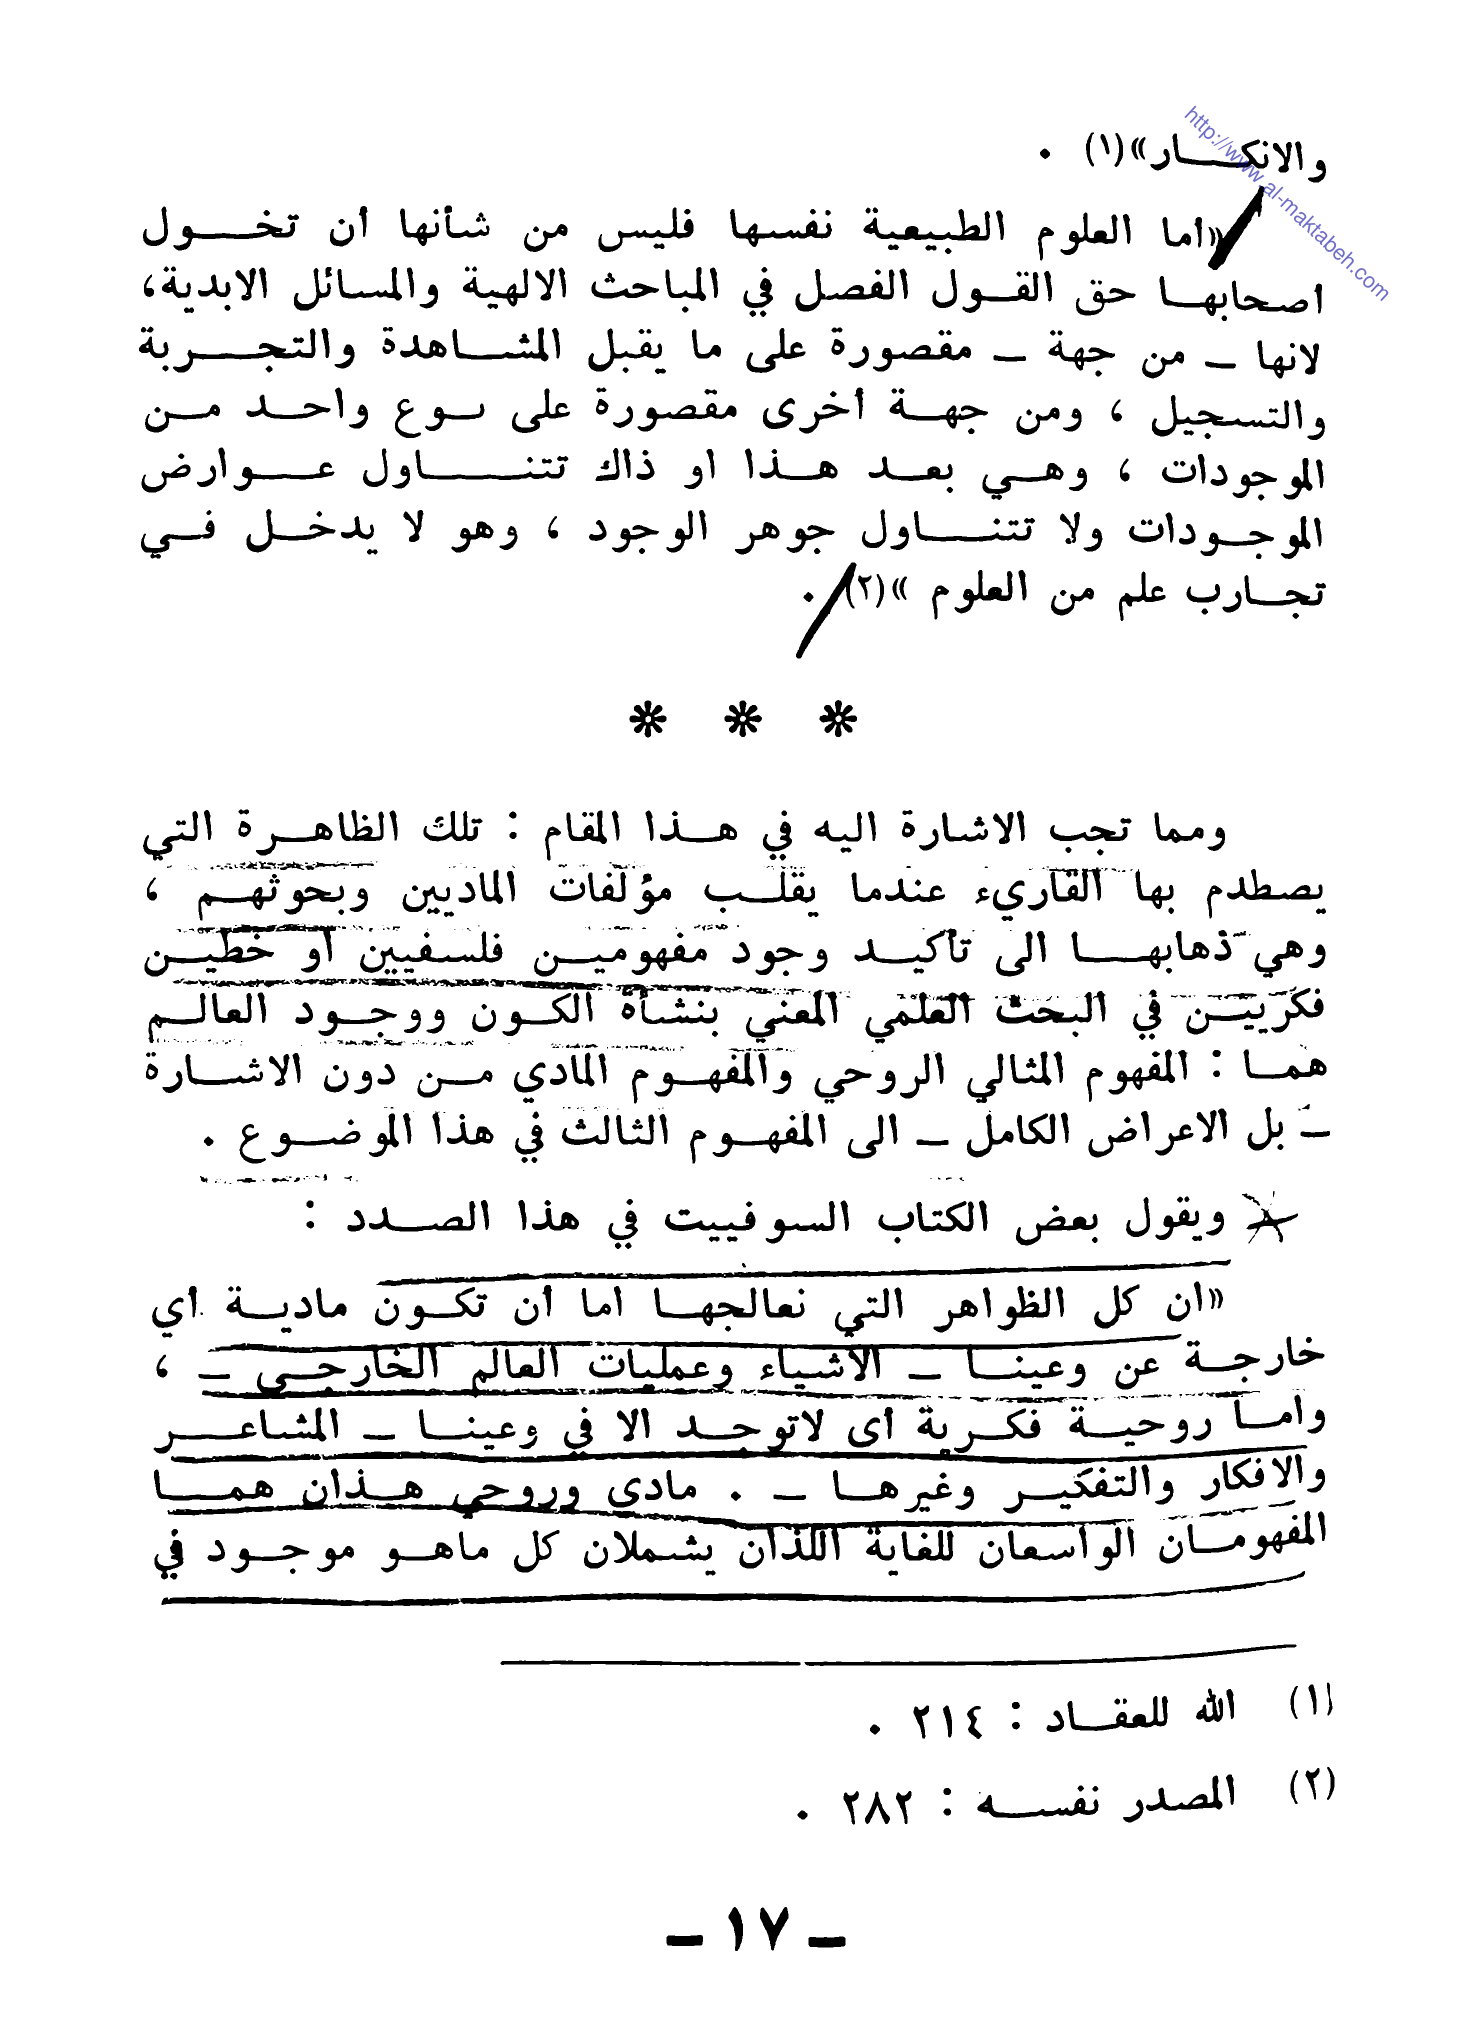 http://www.al-maktabeh.com
والانكـــار»(١) .
«أما العلوم الطبيعية نفسها فليس من شأنها أن تخـــول
أصحابهـا حق القـول الفصل في المباحث الالهية والمسائل الابدية،
لانها ــ من جهة ــ مقصورة على ما يقبل المشـاهدة والتجـــربة
والتسجيل ، ومن جهـة أخرى مقصورة على نوع واحـد مـن
الموجودات ، وهـي بعـد هـذا او ذاك تتنـــاول عـــوارض
الموجـودات ولا تتنـــاول جوهر الوجود ، وهو لا يدخـل فـي
تجـارب علم من العلوم »(٢) .
* * *
ومما تجب الاشارة اليه في هـذا المقام : تلك الظاهـرة التي
يصطدم بها القاريء عندما يقلـب مؤلفات الماديين وبحوثهـم ،
وهي ذهابهـــا الى تأكيـد وجود مفهوميـن فلسفيين أو خطيـن
فكرييـن في البحث العلمي المعني بنشأة الكـون ووجـود العالـم
همـا : المفهوم المثالي الروحي والمفهـوم المادي مـن دون الاشـارة
ــ بل الاعراض الكامل ــ الى المفهـوم الثالث في هذا الموضـوع .
ويقول بعض الكتاب السوفييت في هذا الصـدد :
«ان كل الظواهر التي نعالجهـا اما أن تكـون ماديـة أي
خارجـة عن وعينـا ــ الأشياء وعمليات العالم الخارجـي ــ ،
وامـا روحيـة فكـرية أى لاتوجـد الا في وعينـا ــ المشاعـــر
والافكار والتفكيـر وغيرهـا ــ . مادى وروحي هـذان همـــا
المفهومـان الواسعان للغاية اللذان يشملان كل ماهـو موجـود في
(١) الله للعقـاد : ٢١٤ .
(٢) المصدر نفسـه : ٢٨٢ .
ــ ١٧ ــ